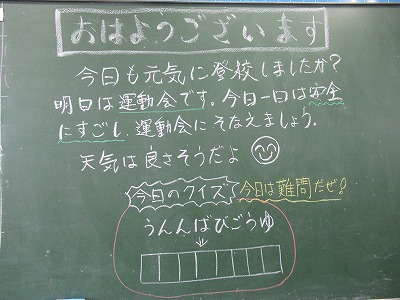 おはようございます
今日も元気に登校しましたか?
明日は運動会です。今日一日は安全
にすごし、運動会にそなえましょう。
天気は良さそうだよ
今日のクイズ 今日は難問だぜ!
うんんばびごうゆ